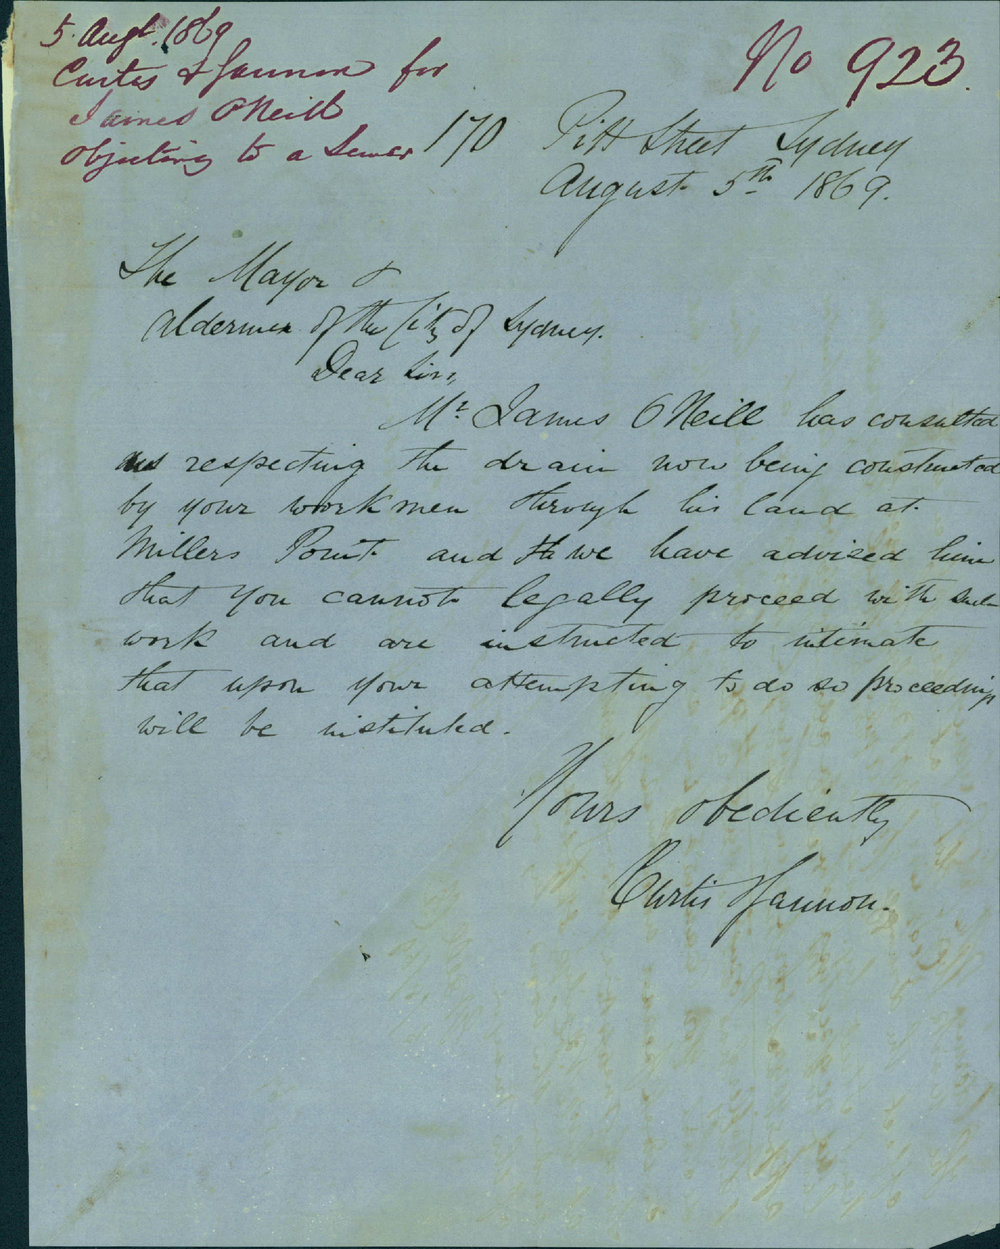 5. Augt. 1869
Curtis & Gannon for
James O'Neill
objecting to a Sewer
No 923.
170 Pitt Street Sydney
August 5th 1869.
The Mayor &
Aldermen of the City of Sydney.
Dear Sirs,
Mr. James O'Neill has consulted
us respecting the drain now being constructed
by your workmen through his land at
Millers Point and we have advised him
that you cannot legally proceed with such
work and are instructed to intimate
that upon your attempting to do so proceedings
will be instituted.
Yours obediently
Curtis & Gannon.